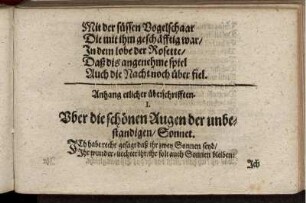 Mit der süssen Vogelschaar
Die mit ihm geschäfftig war/
In dem lobe der Rosette/
Daß dis angenehme spiel
Auch die Nacht noch über fiel.
Anhang etlicher überschrifften.
I.
Vber die schönen Augen der unbe-
ständigen/ Sonnet.
ICh habe recht gesagt daß ihr zwey Sonnen seyd/
Ihr wunder- ihr ihr solt auch Sonnen bleiben:
Ich